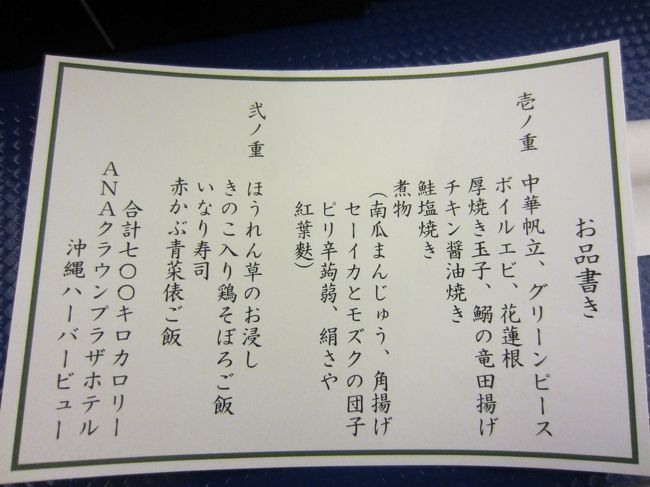 お品書き
壱ノ重 中華帆立、グリーンピース
ボイルエビ、花蓮根
厚焼き玉子、鰯の竜田揚げ
チキン醤油焼き
鮭塩焼き
煮物
(南瓜まんじゅう、角揚げ
セーイカとモズクの団子
ピリ辛蒟蒻、絹さや
紅葉麩)
弐ノ重 ほうれん草のお浸し
きのこ入り鶏そぼろご飯
いなり寿司
赤かぶ青菜俵ご飯
合計七〇〇キロカロリー
ANAクラウンプラザホテル
沖縄ハーバービュー